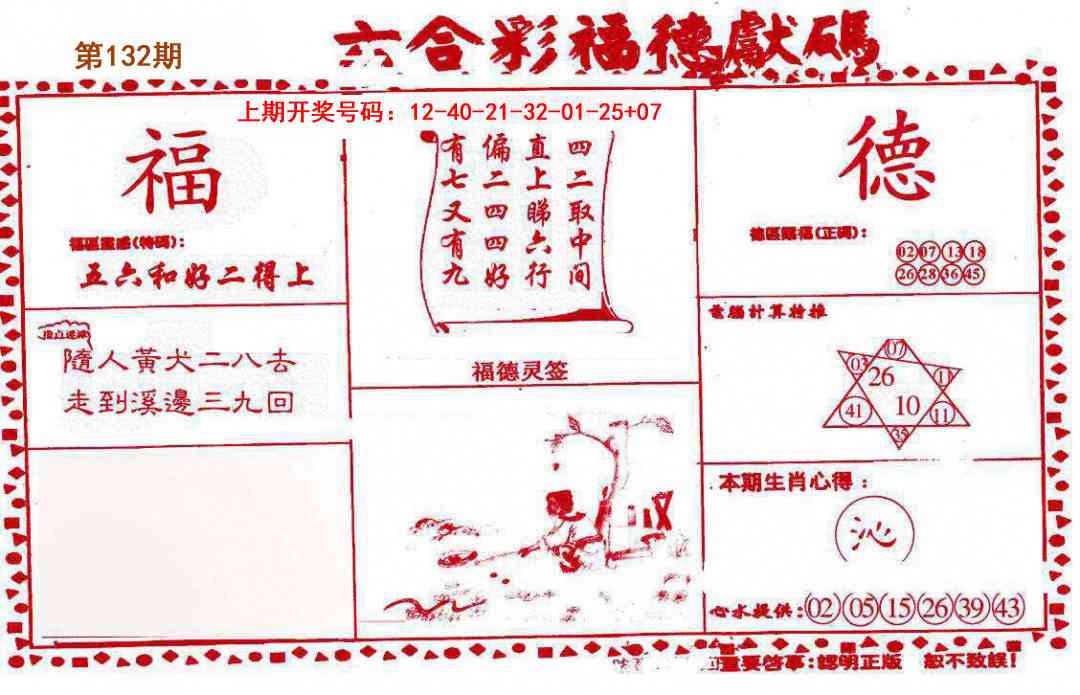 六合彩福德獻碼
第132期
上期开奖号码：12-40-21-32-01-25+07
福
福區靈感(特碼)：
五六和好二得上
隨人黃犬二八去
走到溪邊三九回
四二取中间
直上睇六行
偏二四四好
有七又有九
福德灵签
德
德區賜福(正碼)：
02 07 13 18
26 28 36 45
電腦計算特推
07
03 26 1
41 10 11
35
本期生肖心得：
沁
心水提供：02 05 15 26 39 43
重要啓事：認明正版 恕不致誤！